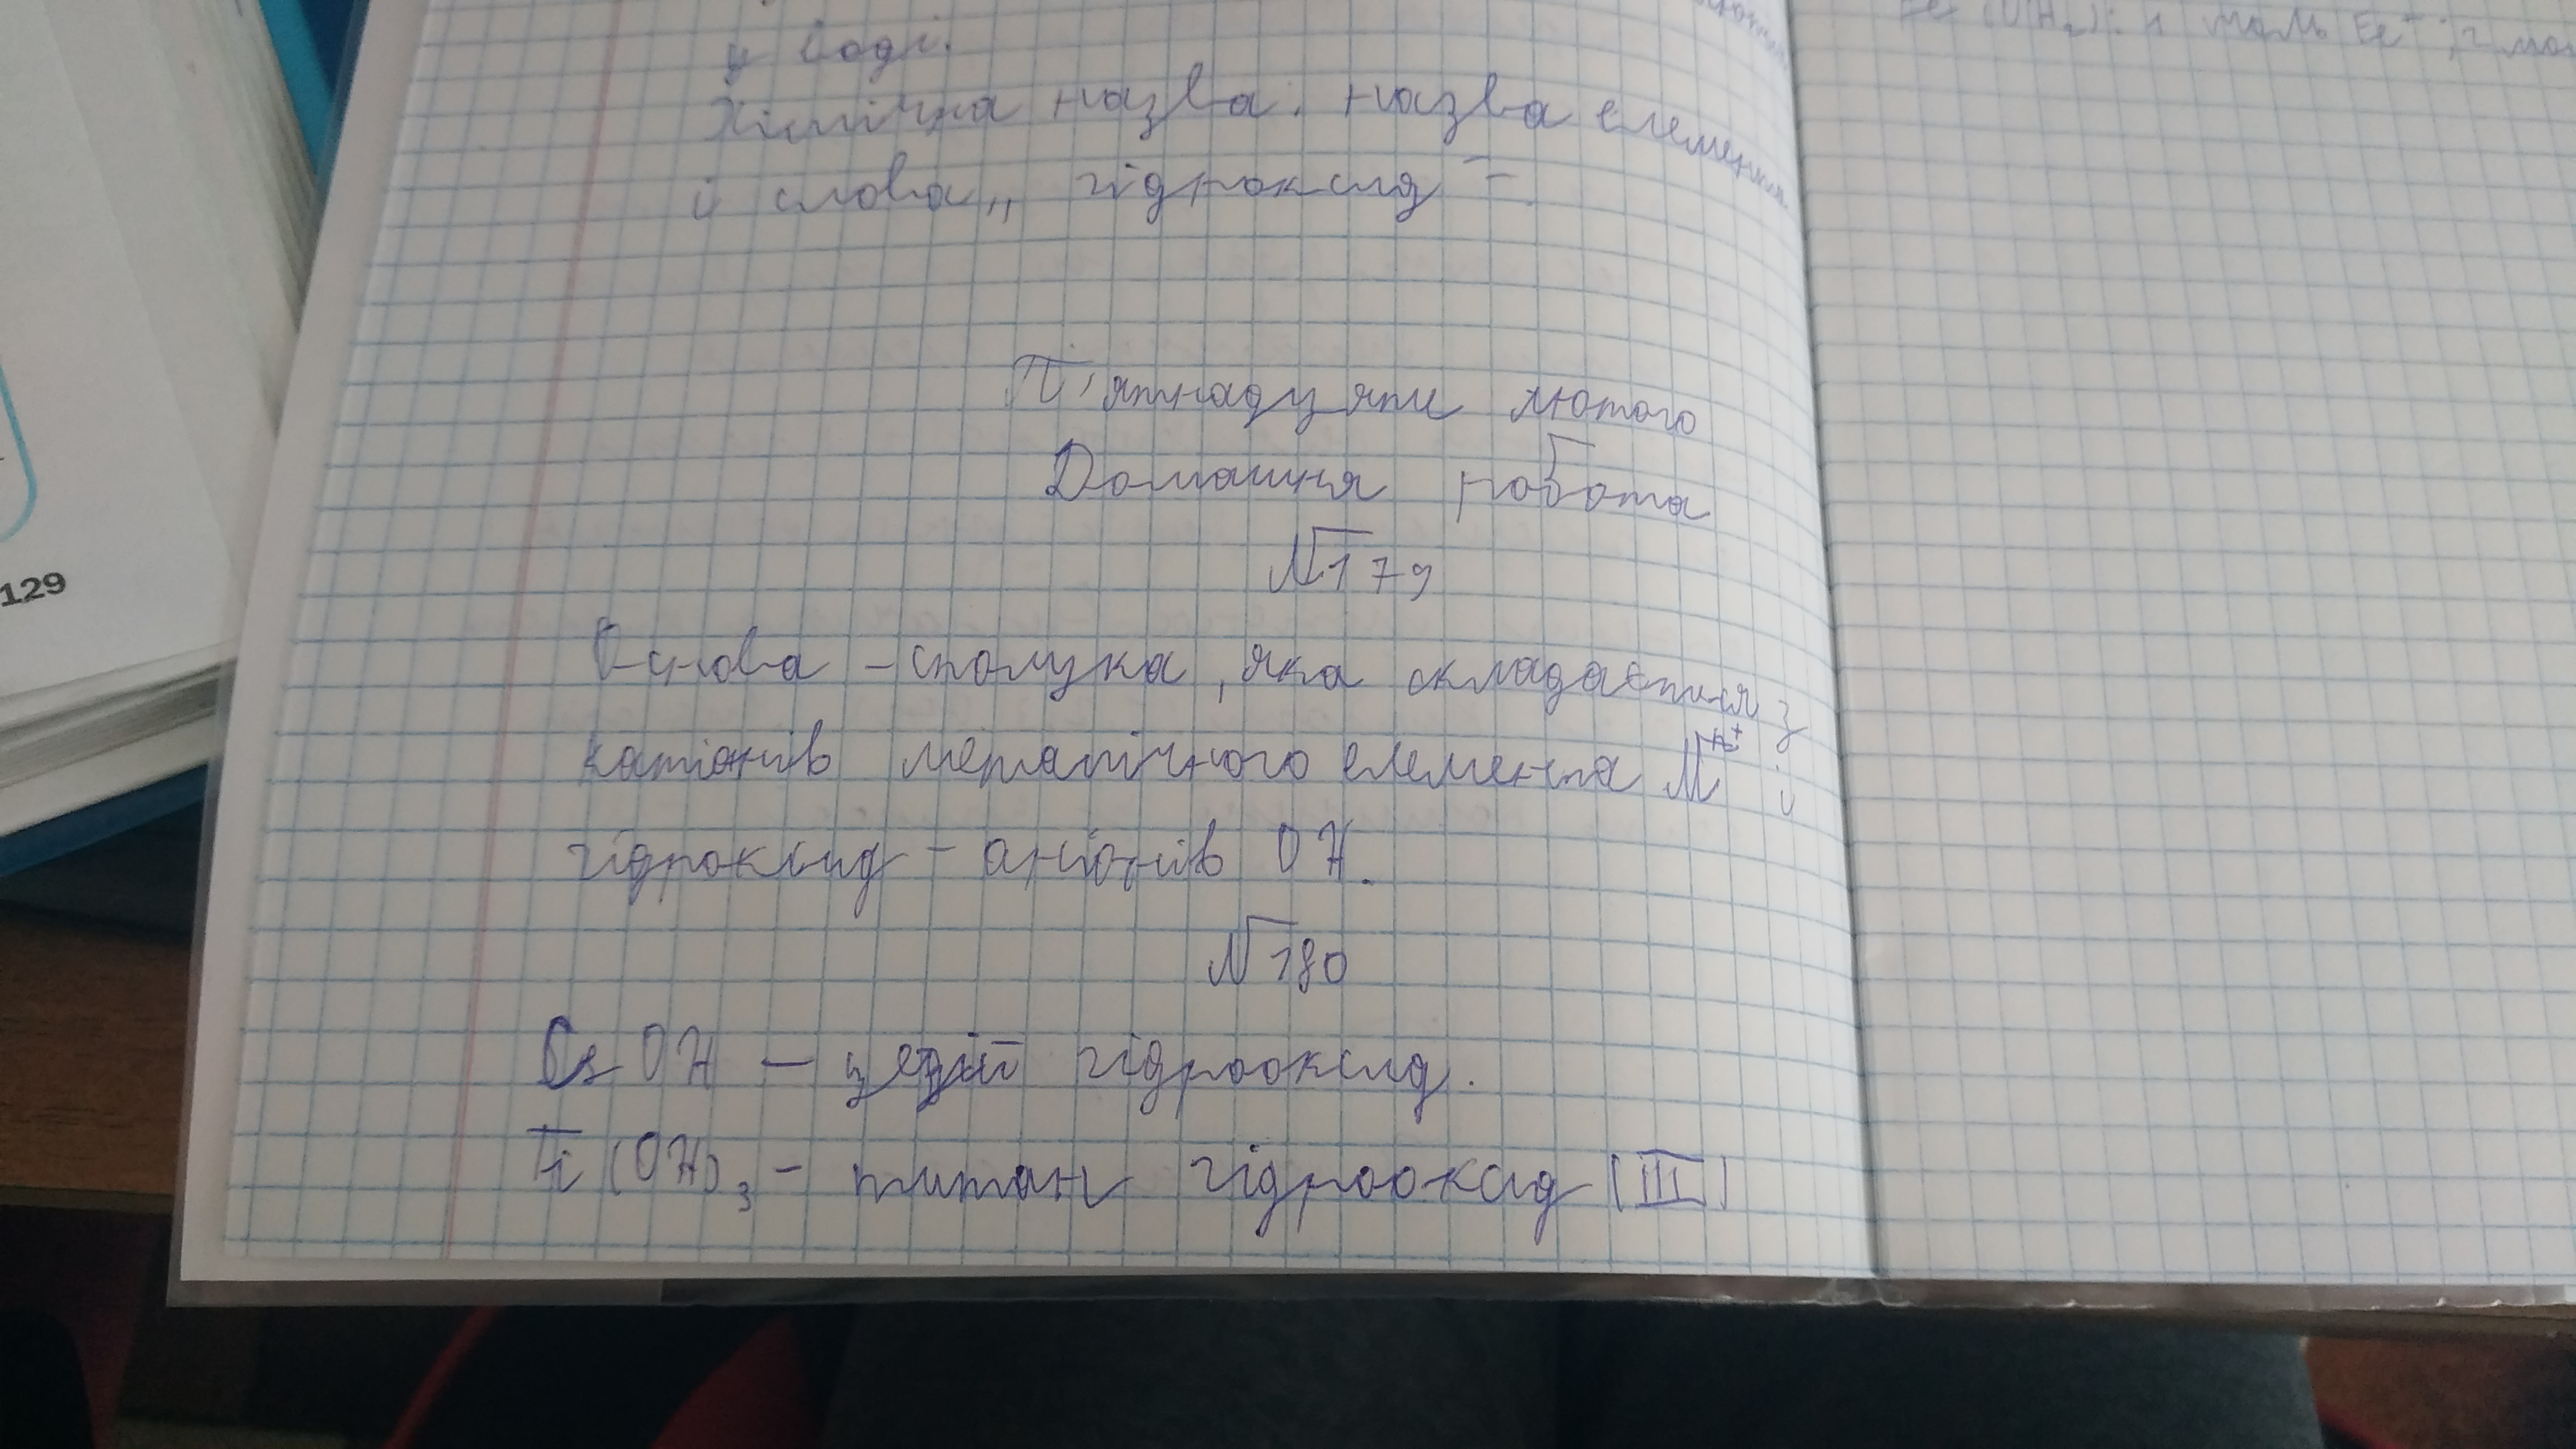 у воді.
Хімічна назва: назва елемента
і слова „ гідроксид "
Fe (OH₂): 1 моль Fe
129
П'ятнадцяте лютого
Домашня робота
№179
Основа – сполука, яка складається з
катіонів металічного елемента Mⁿ⁺ і
гідроксид – аніонів OH.
№180
CsOH — цезій гідрооксид.
Ti(OH)₃ – титан гідрооксид (III)